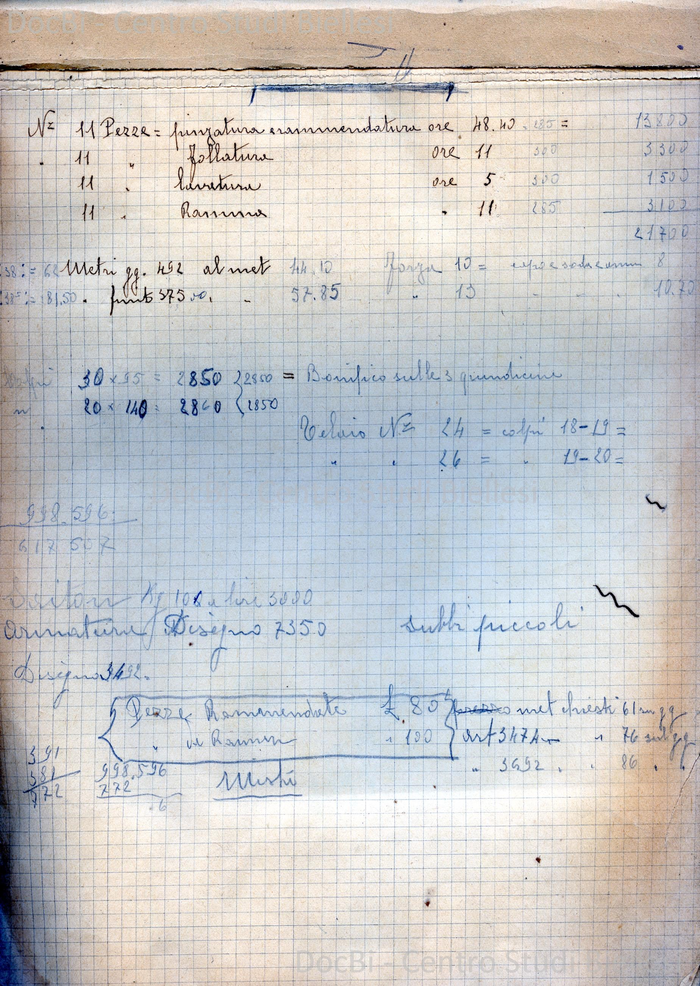 DocBi - Centro Studi Biellesi
N.º 11 Pezze = pinzatura e rammendatura ore 48.40 285 = 13800
" 11 " follatura ore 11 300 3300
11 " lavatura ore 5 300 1500
11 " Ramma " 11 285 3100
21700
Metri gg. 492 al met 44.10 forza 10 = 8
81.50 " finito 375 " 57.85 " 13 " " 10.70
30 × 95 = 2850 2850 = Bonifico sulle 3 quindicine
20 × 140 = 2860 2850
Telaio N.º 24 = colpi 18-19 =
" " 26 = " 19-20 =
998.596
617 507
Kg 108 a lire 3000
armature Disegno 7350 subbi piccoli
Disegno 3492.
Pezze Rammendate £ 80 met chiesti 61 m gg
" di Ramma " 100 art 3474 " 76 m gg
391
381 998.596 Misti " 3692 " 86 " "
972 772
6
DocBi - Centro Studi